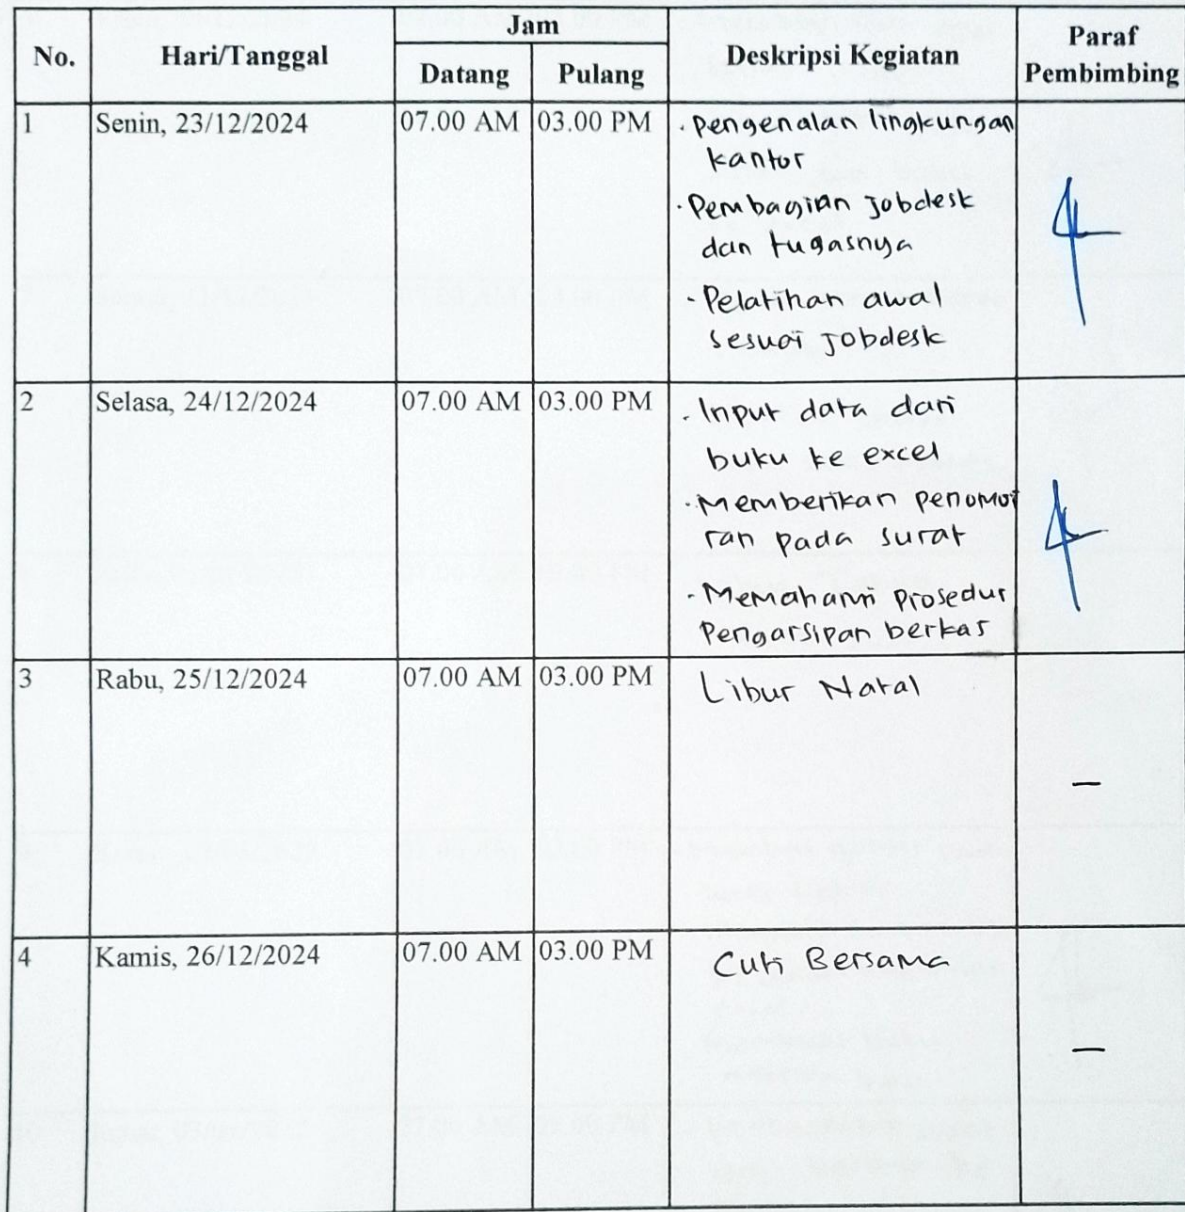 No. Hari/Tanggal Jam Deskripsi Kegiatan Paraf Pembimbing
Datang Pulang
1 Senin, 23/12/2024 07.00 AM 03.00 PM · pengenalan lingkungan
kantor
· Pembagian Jobdesk
dan tugasnya
· Pelatihan awal
sesuai Jobdesk
2 Selasa, 24/12/2024 07.00 AM 03.00 PM · Input data dari
buku ke excel
· Memberikan penomo
ran pada surat
· Memahami Prosedur
Pengarsipan berkas
3 Rabu, 25/12/2024 07.00 AM 03.00 PM Libur Natal
–
4 Kamis, 26/12/2024 07.00 AM 03.00 PM Cuti Bersama
–